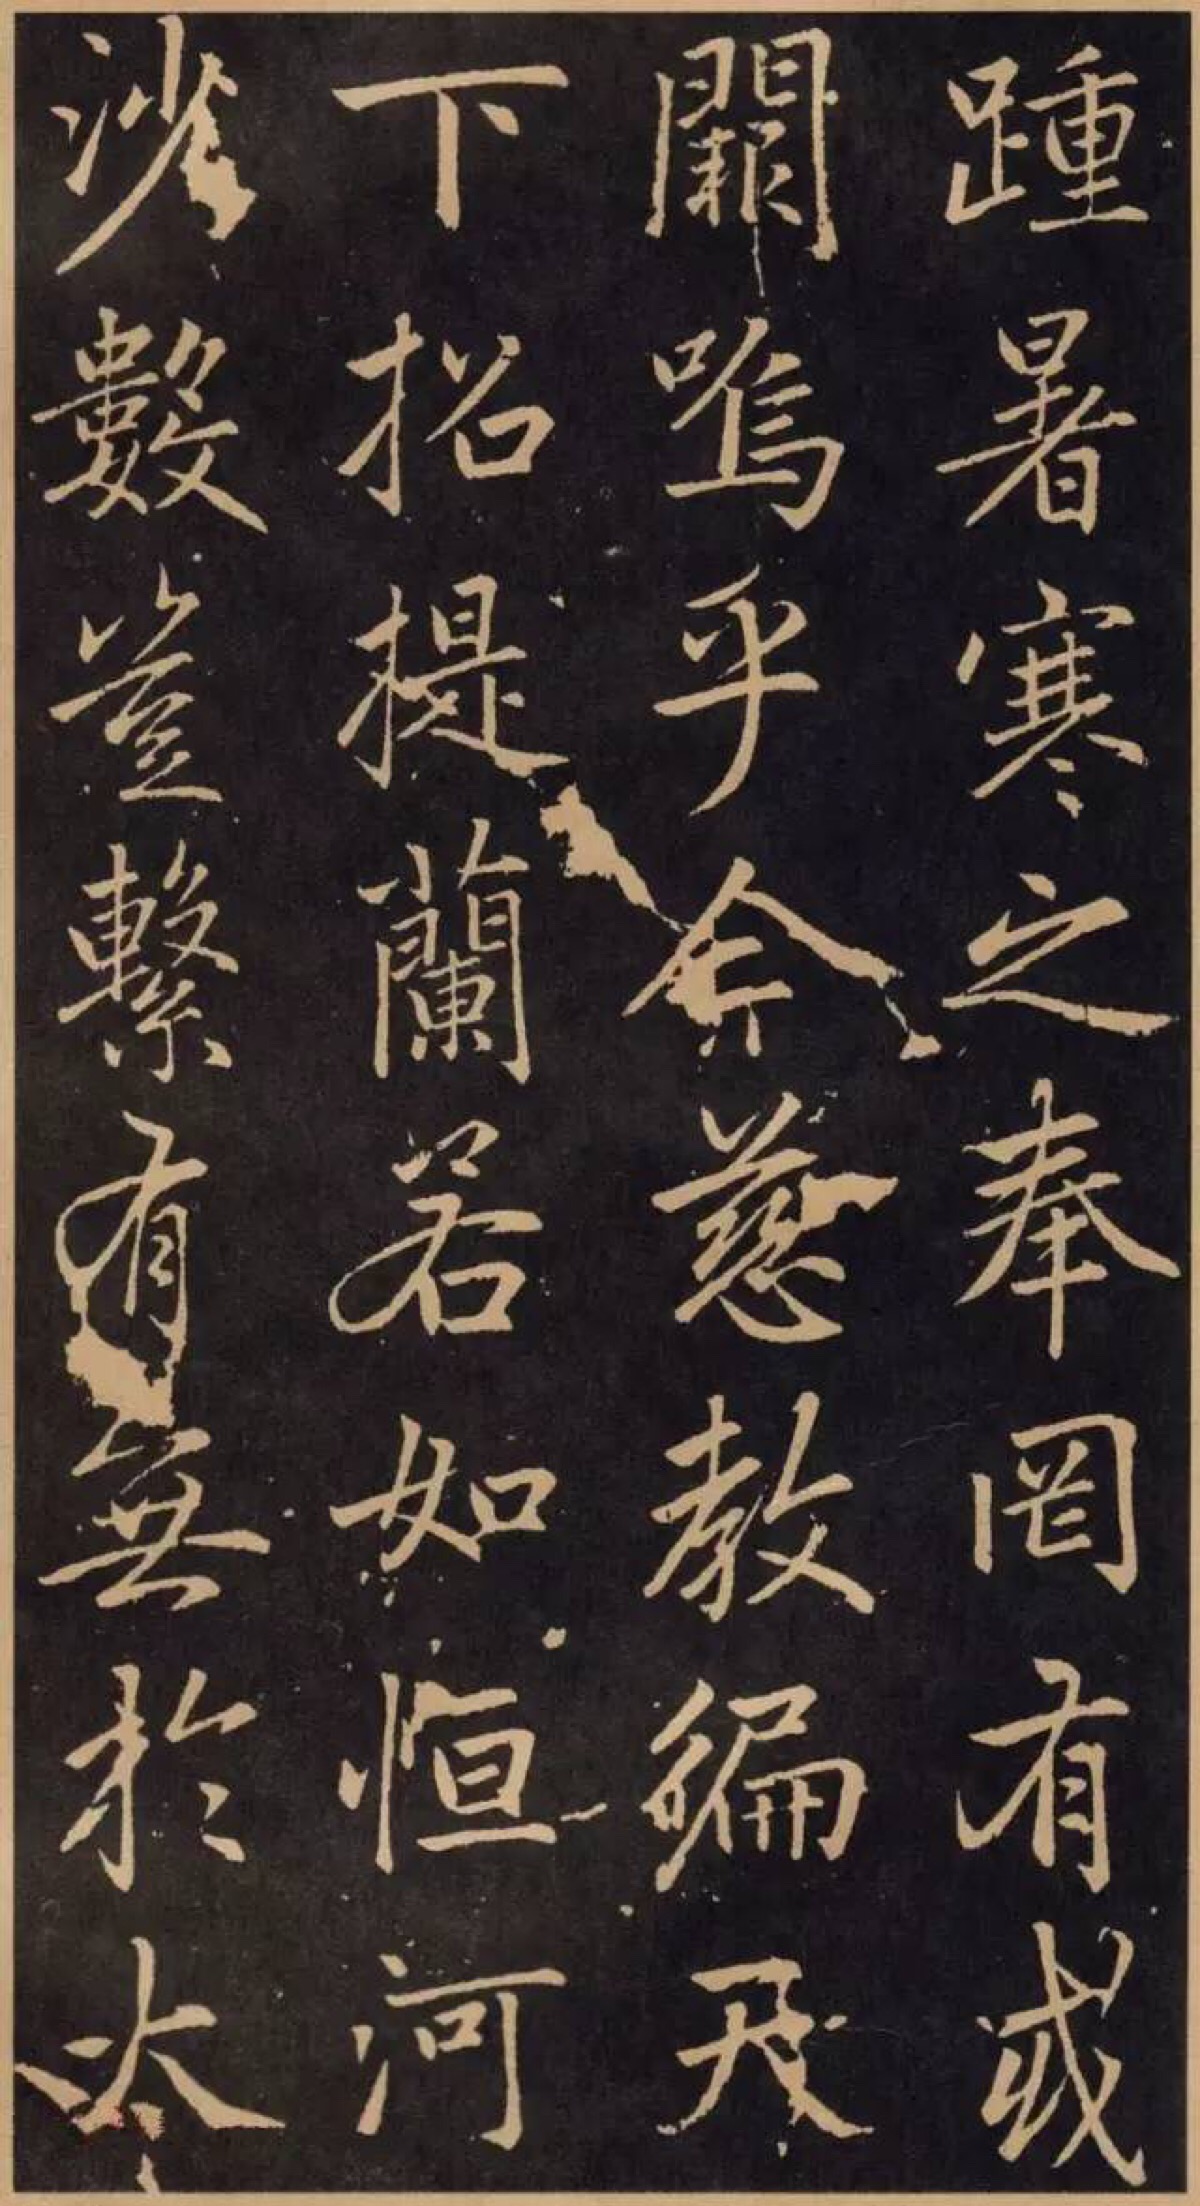 踵暑寒之奉罔有或
闕嗚乎今慈教編天
下招提蘭若如恒河
沙數豈繫有無於太